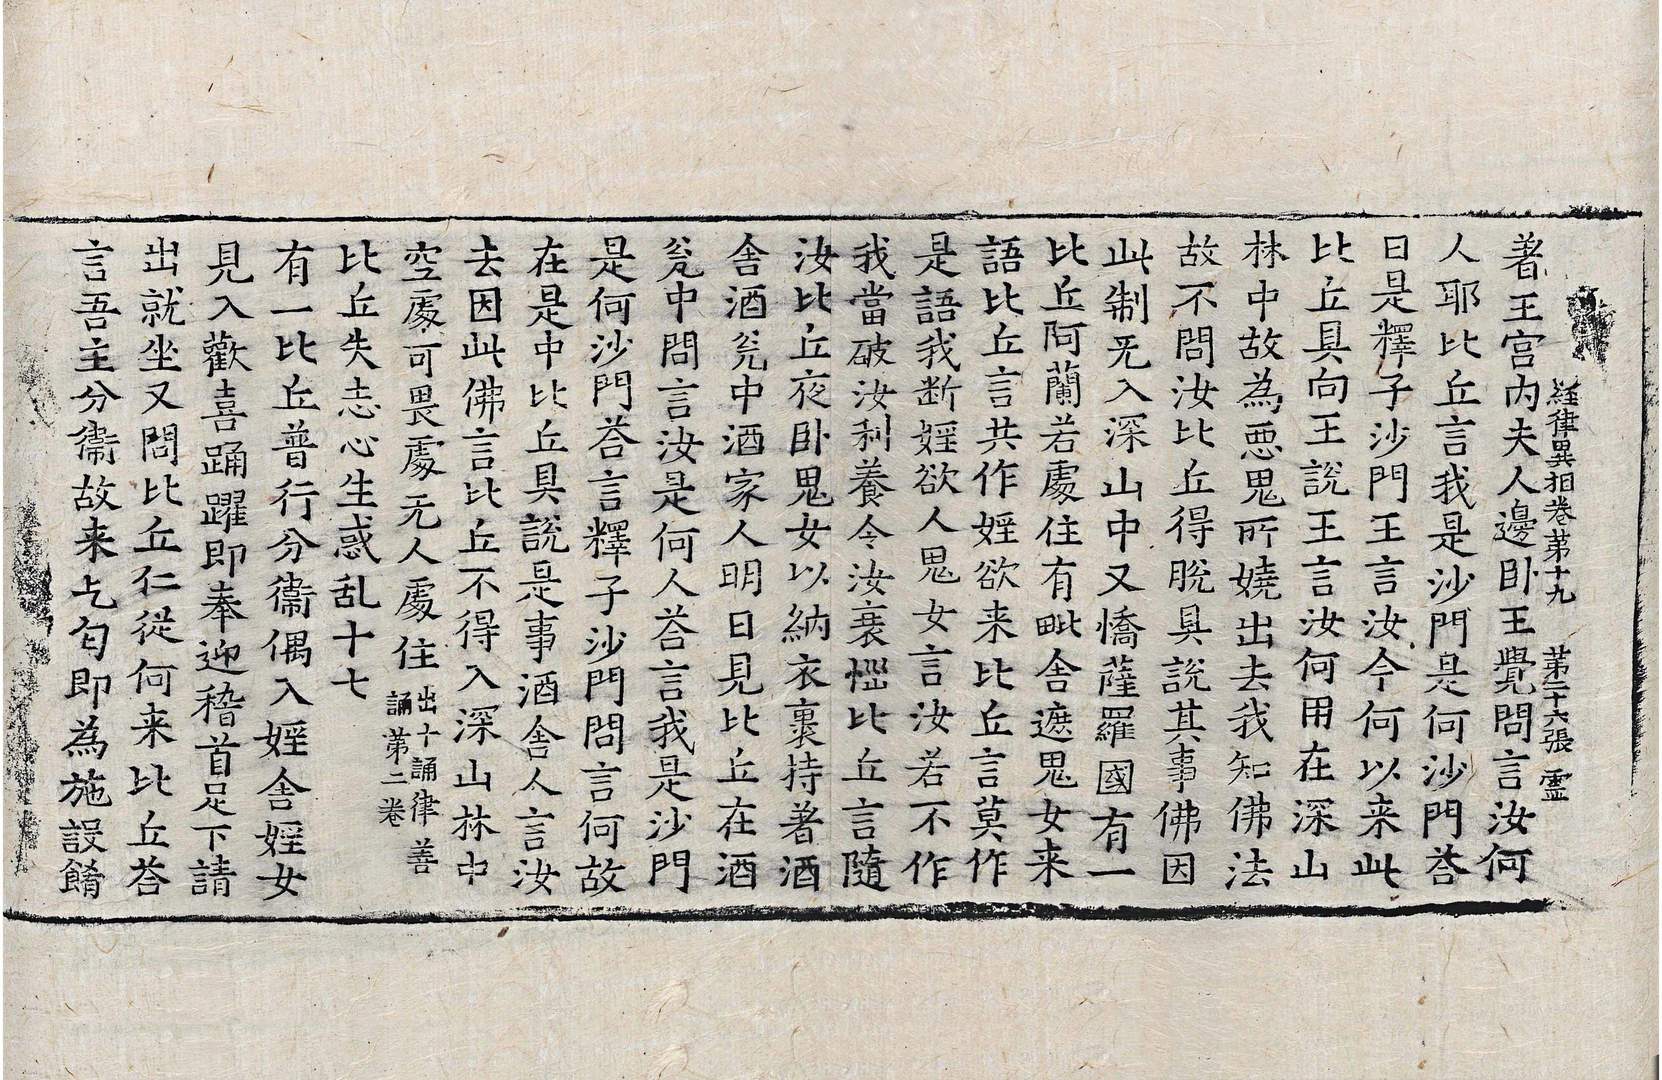 経律異相卷第十九　第二十六張　霊
著王宮内夫人邊卧王覺問言汝何
人耶比丘言我是沙門是何沙門荅
曰是釋子沙門王言汝今何以来此
比丘具向王說王言汝何用在深山
林中故為悪鬼所嬈出去我知佛法
故不問汝比丘得脫具說其事佛因
此制无入深山中又憍薩羅國有一
比丘阿蘭若處住有毗舍遮鬼女来
語比丘言共作婬欲来比丘言莫作
是語我断婬欲人鬼女言汝若不作
我當破汝利養令汝衰惱比丘言隨
汝比丘夜卧鬼女以納衣裹持著酒
舍酒瓮中酒家人明日見比丘在酒
瓮中問言汝是何人荅言我是沙門
是何沙門荅言釋子沙門問言何故
在是中比丘具說是事酒舍人言汝
去因此佛言比丘不得入深山林中
空處可畏處无人處住出十誦律善誦第二卷
比丘失志心生惑乱十七
有一比丘普行分衞偶入婬舍婬女
見入歡喜踊躍即奉迎稽首足下請
出就坐又問比丘仁從何来比丘荅
言吾主分衞故来乞匄即為施設餚